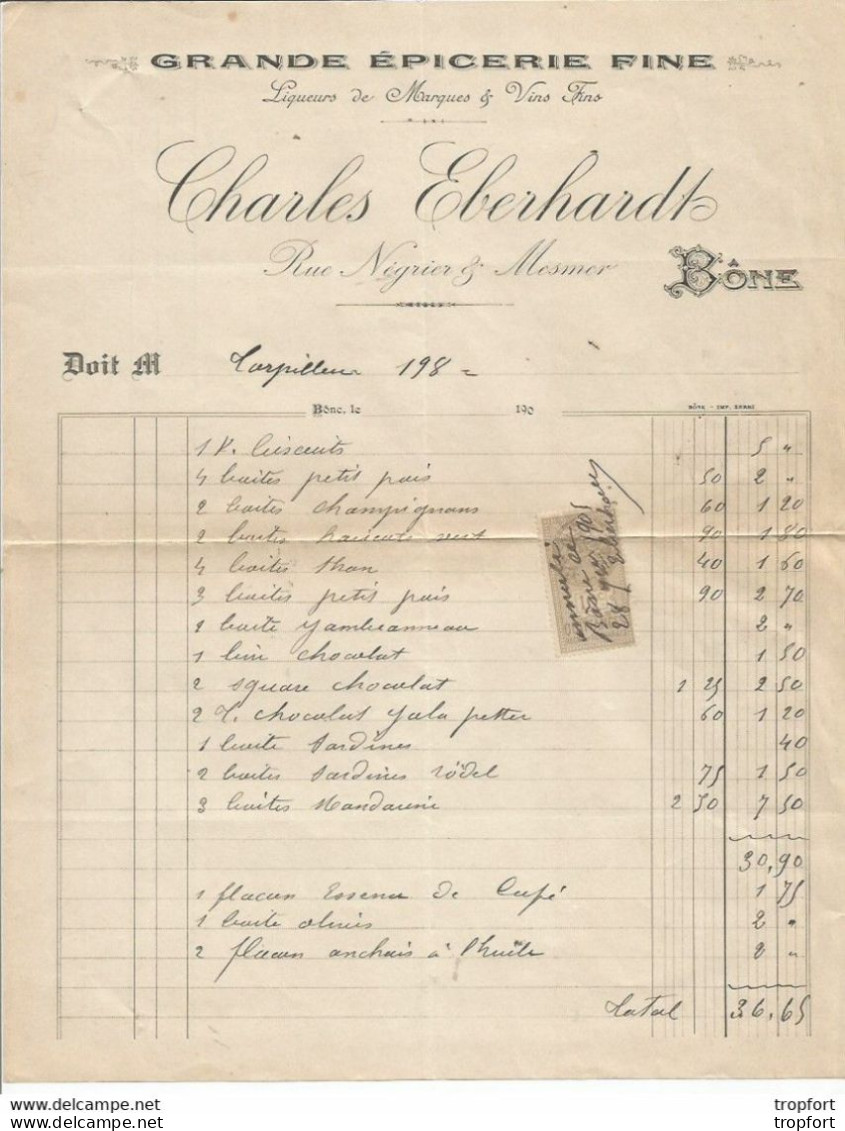 GRANDE ÉPICERIE FINE
Liqueurs de Marques & Vins Fins
Charles Eberhardt
Rue Négrier & Mesmer BÔNE
Doit M Torpilleur 198 =
Bône, le 190
1 K. biscuits 5 "
4 boites petit pois 50 2 "
2 boites champignons 60 1 20
2 boites haricots vert 90 1 80
4 boites thon 40 1 60
3 boites petit pois 90 2 70
1 boite Jambonneau 2 "
1 chocolat 1 50
2 square chocolat 1 25 2 50
2 T. chocolat Gala petter 60 1 20
1 boite Sardines 40
2 boites Sardines rödel 75 1 50
3 boites Mandarine 2 50 7 50
30,90
1 flacon Essence de Café 1 75
1 boite olives 2 "
2 flacon anchois à l'huile 2 "
Total 36,65
annulé
Bône le
28 1905
Eberhardt
tropfort tropfort
www.delcampe.net tropfort
www.delcampe.net tropfort